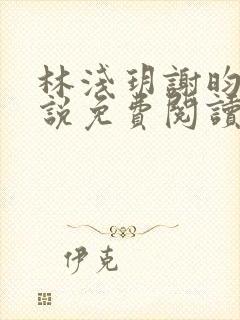 林淺玥謝昀
說免費閱讀
伊克